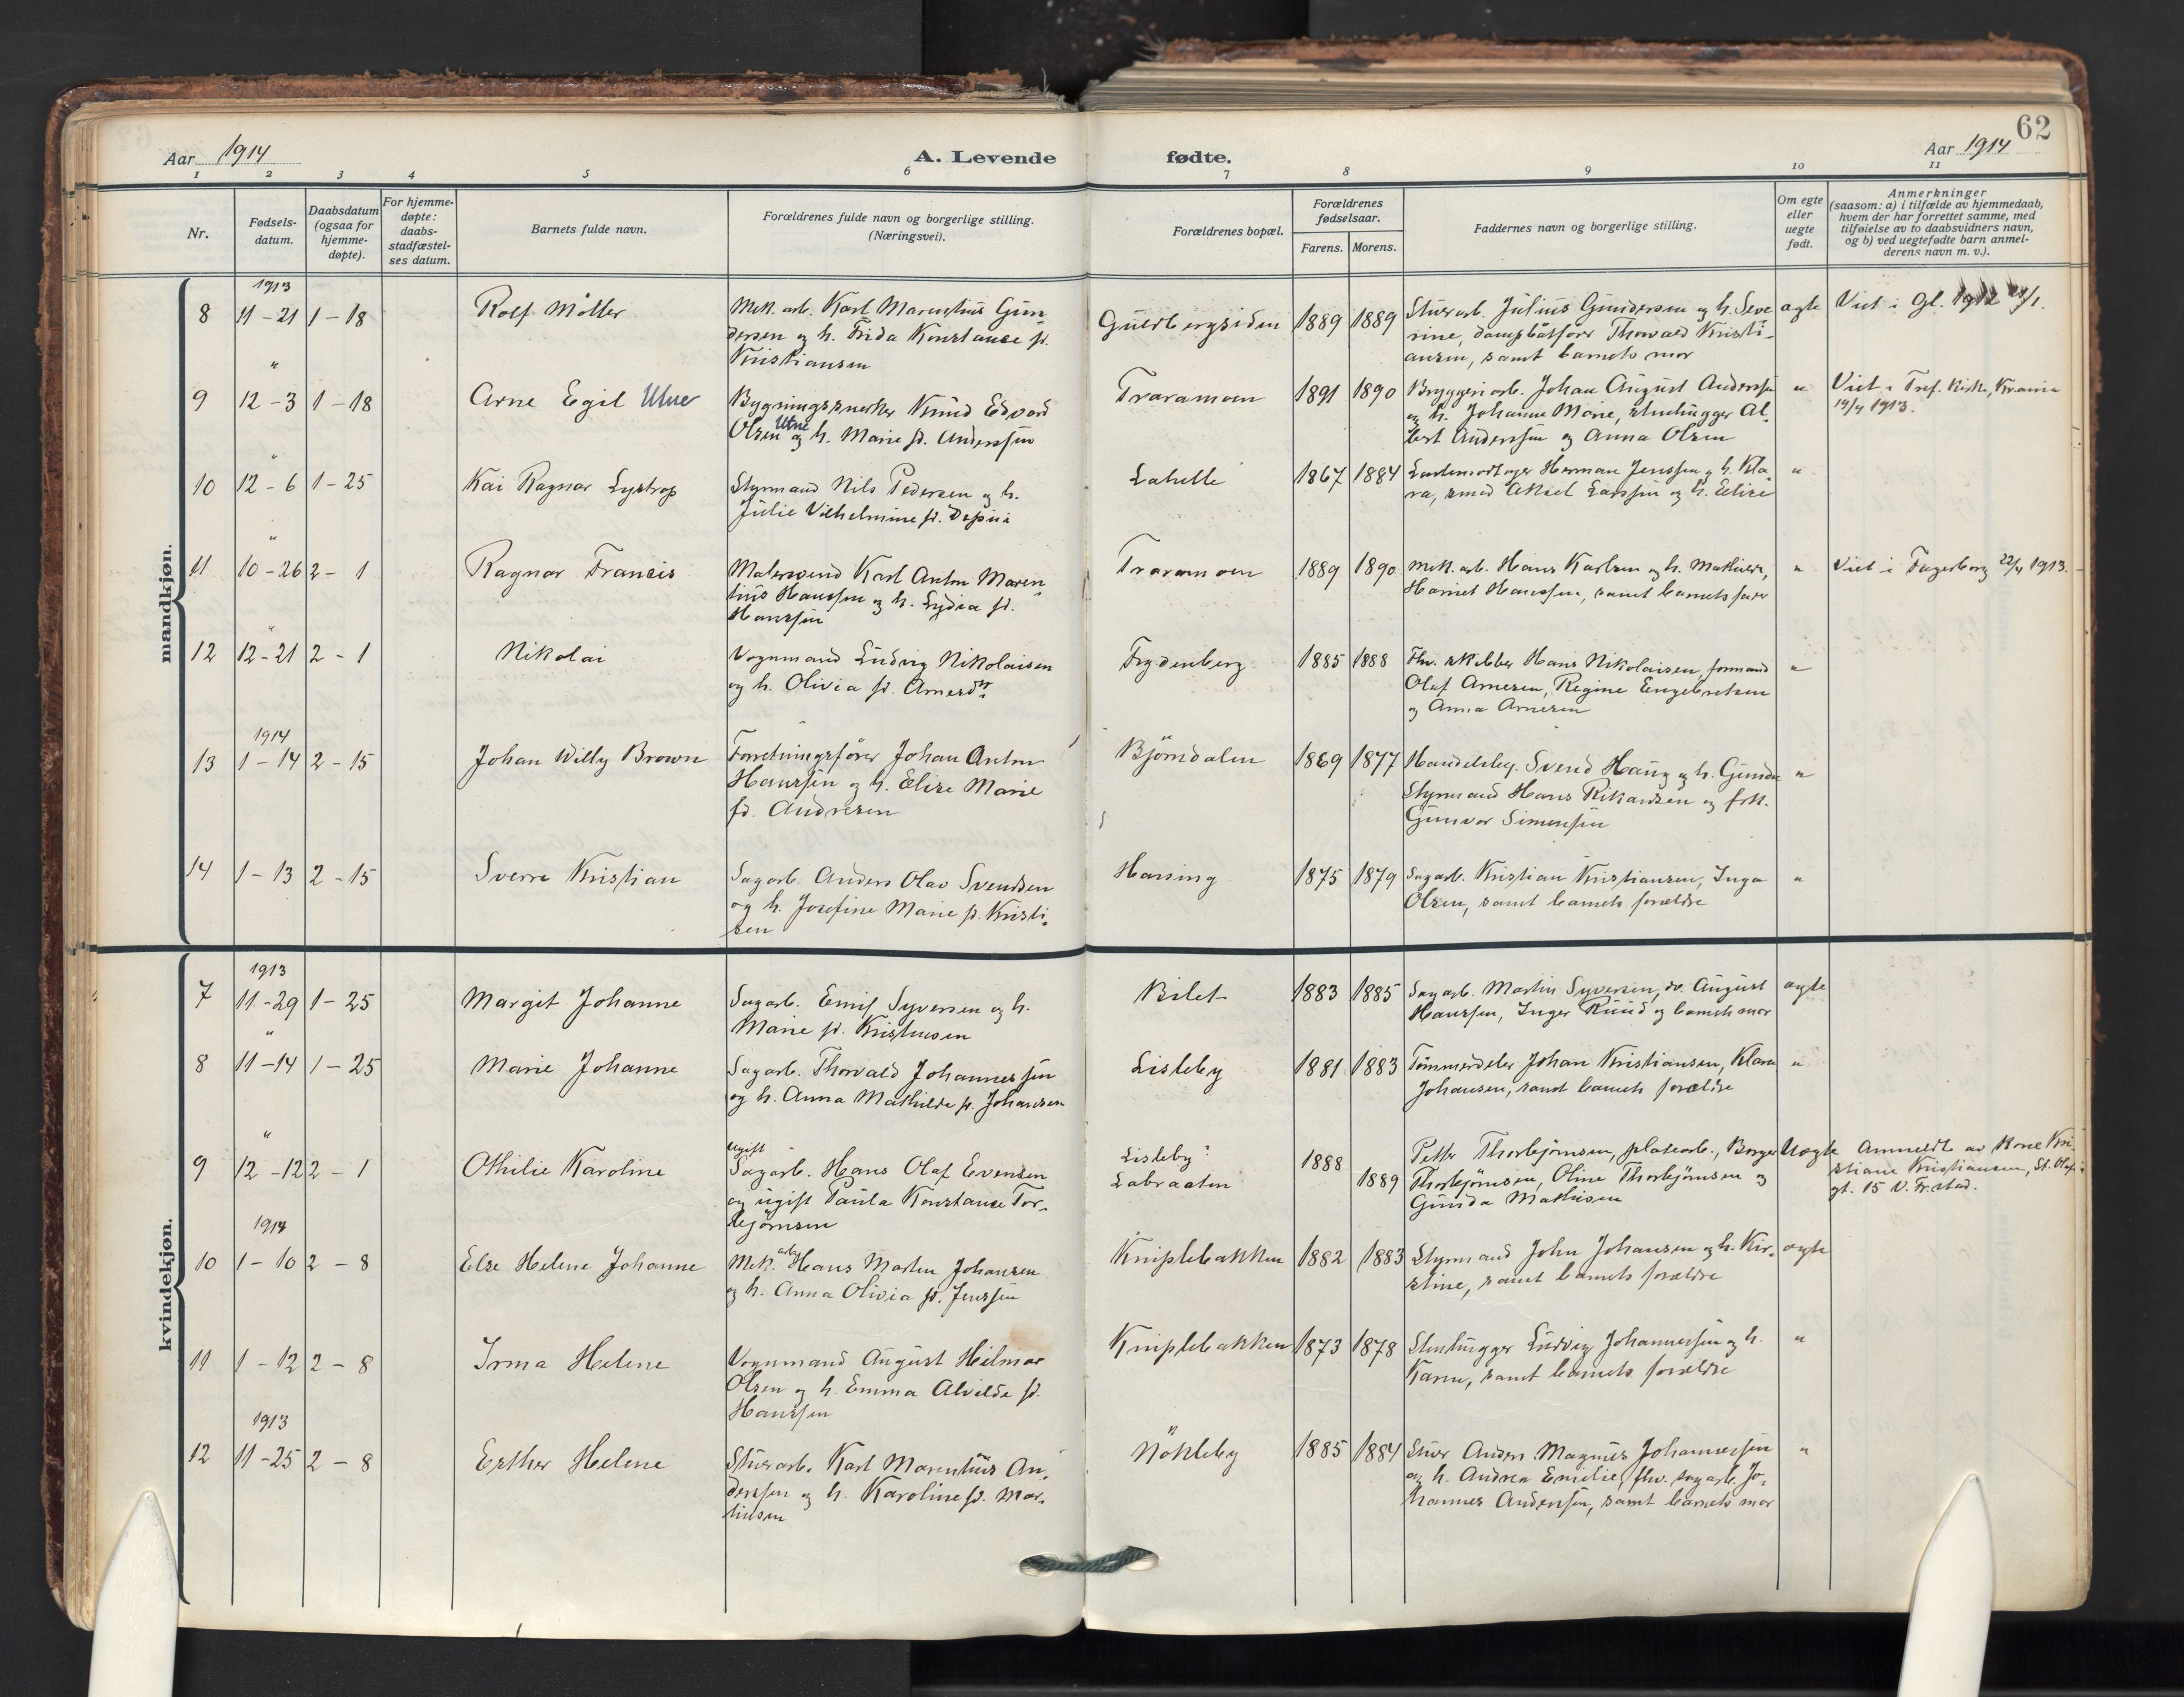 62
Aar 1914
A. Levende fødte.
Aar 1914
1 2 3 4 5 6 7 8 9 10 11
Nr.
Fødsels-
datum.
Daabsdatum
(ogsaa for
hjemme-
døpte).
For hjemme-
døpte:
daabs-
stadfæstel-
ses datum.
Barnets fulde navn.
Forældrenes fulde navn og borgerlige stilling.
(Næringsvei).
Forældrenes bopæl.
Forældrenes
fødselsaar.
Farens. Morens.
Faddernes navn og borgerlige stilling.
Om egte
eller
uegte
født.
Anmerkninger
(saasom: a) i tilfælde av hjemmedaab,
hvem der har forrettet samme, med
tilføielse av to daabsvidners navn,
og b) ved uegtefødte barn anmel-
derens navn m. v.).
mandkjøn.
1913
8 11-21 1-18
Rolf Möller
Mek. arb. Karl Marenthius Gun-
dersen og h. Frida Konstance f.
Kristiansen
Guldbergsiden
1889 1889
Stuerarb. Julius Gundersen og h. Seve-
rine, dampbåtfører Thorvald Kristi-
ansen, samt barnets mor
egte
Viet i Gl. 1912
"
9 12-3 1-18
Arne Egil Utne
Bygningssnerker Knud Edvard
Olsen Utne og h. Marie f. Anderssen
Traramoen
1891 1890
Bryggeriarb. Johan August Anderssen
og h. Johanne Marie, stenhugger Al-
bert Anderssen og Anna Olsen
"
Viet i Tref. kirke, Krania
19/4 1913.
"
10 12-6 1-25
Kai Ragnar Lystrop
Styrmand Nils Pedersen og h.
Julie Vilhelmine f.
Lahelle
1867 1884
Herman Jenssen og h. Kla-
ra, smed Aksel Larssen og h. Elise
"
"
11 10-26 2-1
Ragnar Francis
Malersvend Karl Anton Maren-
tius Hanssen og h. Lydia f.
Hanssen
Traramoen
1889 1890
Mek. arb. Hans Karlsen og h. Mathilde,
Harriet Hanssen, samt barnets far
"
Viet i Fagerborg 22/4 1913.
"
12 12-21 2-1
Nikolai
Vognmand Ludvig Nikolaisen
og h. Olivia f. Arnesdtr
Frydenberg
1885 1888
Fhv. skibber Hans Nikolaisen, formand
Olaf Arnesen, Regine Engebretsen
og Anna Arnesen
"
1914
13 1-14 2-15
Johan Willy Brown
Forretningsfører Johan Anton
Hanssen og h. Elise Marie
fd. Andresen
Björndalen
1869 1877
Handelsbeg. Svend Haug og h. Gunda
Styrmand Hans Rikardsen og frk.
Gunvor Simensen
"
14 1-13 2-15
Sverre Kristian
Sagarb. Anders Olav Svendsen
og h. Josefine Marie f. Kristi-
sen
Hassing
1875 1879
Sagarb. Kristian Kristiansen, Inga
Olsen, samt barnets forældre
"
kvindekjøn.
1913
7 11-29 1-25
Margit Johanne
Sagarb. Emil Syversen og h.
Marie f. Kristensen
Bilet
1883 1885
Sagarb. Martin Syversen, do. August
Hanssen, Inger Ruud og barnets mor
egte
"
8 11-14 1-25
Marie Johanne
Sagarb. Thorvald Johannessen
og h. Anna Mathilde f. Johansen
Lisleby
1881 1883
Tömmerdeler Johan Kristiansen, Klara
Johansen, samt barnets forældre
"
"
9 12-12 2-1
Othilie Karoline
Ugift
Sagarb. Hans Olaf Evensen
og ugift Paula Konstance Tor-
bjørnsen
Lisleby
Labraaten
1888
1889
Petter Thorbjørnsen, platearb., Borger
Thorbjørnsen, Oline Thorbjørnsen og
Gunda Mathisen
Uegte
Anmeldt av kone Kri-
stiane Kristiansen, St. Olafs
gt. 15 V. Fr.stad.
1914
10 1-10 2-8
Else Helene Johanne
Mek. arb. Hans Marten Johansen
og h. Anna Olivia f. Jenssen
Kniplebakken
1882 1883
Styrmand John Johansen og h. Kir-
stine, samt barnets forældre
egte
11 1-12 2-8
Irma Helene
Vognmand August Hilmar
Olsen og h. Emma Alvilde f.
Hanssen
Kniplebakken
1873 1878
Stenhugger Ludvig Johannessen og h.
Karen, samt barnets forældre
"
1913
12 11-25 2-8
Esther Helene
Stuerarb. Karl Marenthius An-
derssen og h. Karoline f. Mar-
tinsen
Nökleby
1885 1884
Stuer Anders Magnus Johannessen
og h. Andrea Emilie, fhv. sagarb. Jo-
hannes Anderssen, samt barnets mor
"